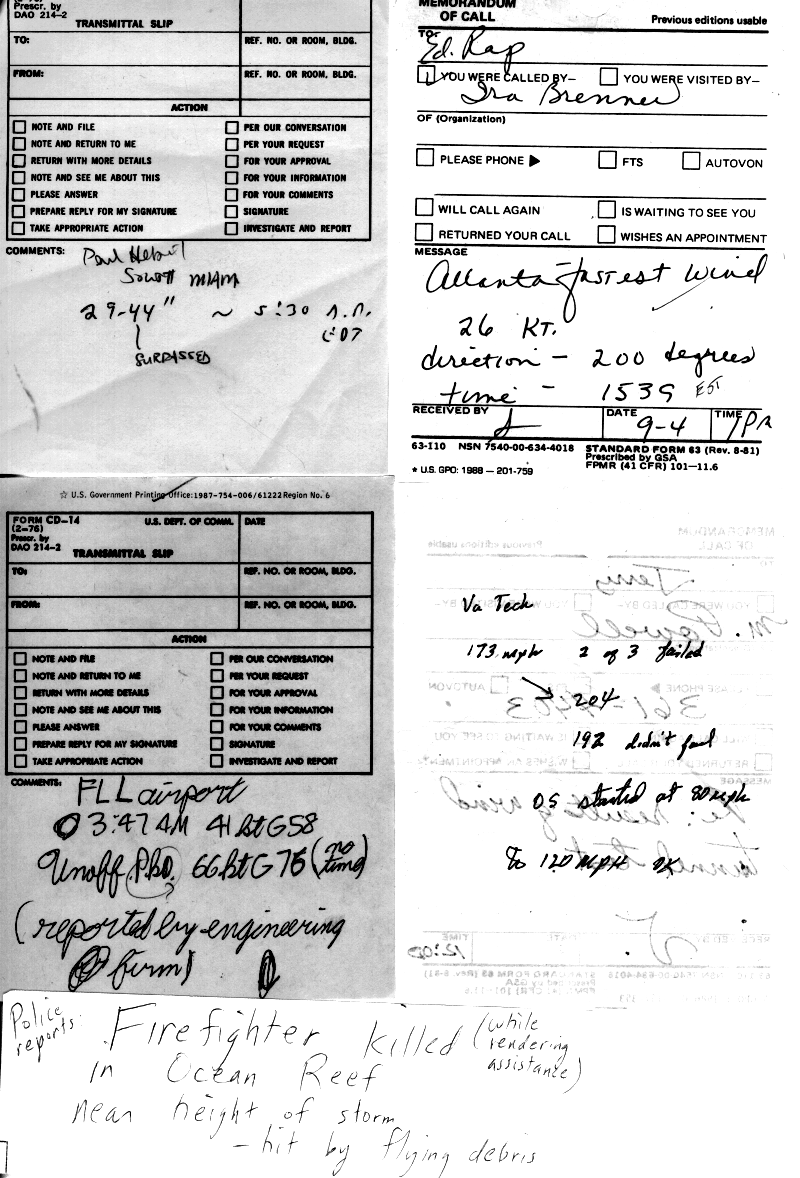 Prescr. by
DAO 214-2
TRANSMITTAL SLIP
TO:
REF. NO. OR ROOM, BLDG.
FROM:
REF. NO. OR ROOM, BLDG.
ACTION
NOTE AND FILE
PER OUR CONVERSATION
NOTE AND RETURN TO ME
PER YOUR REQUEST
RETURN WITH MORE DETAILS
FOR YOUR APPROVAL
NOTE AND SEE ME ABOUT THIS
FOR YOUR INFORMATION
PLEASE ANSWER
FOR YOUR COMMENTS
PREPARE REPLY FOR MY SIGNATURE
SIGNATURE
TAKE APPROPRIATE ACTION
INVESTIGATE AND REPORT
COMMENTS:
Paul Hebert
South MIAMI
29-44" ~ 5:30 A.M.
SURPASSED
MEMORANDUM
OF CALL
Previous editions usable
TO:
Ed. Rap
YOU WERE CALLED BY—
YOU WERE VISITED BY—
Ira Brenner
OF (Organization)
PLEASE PHONE ▶
FTS
AUTOVON
WILL CALL AGAIN
IS WAITING TO SEE YOU
RETURNED YOUR CALL
WISHES AN APPOINTMENT
MESSAGE
Atlanta-fastest wind
26 KT.
direction - 200 degrees
time - 1539 EST
RECEIVED BY
DATE
9-4
TIME
63-110 NSN 7540-00-634-4018
STANDARD FORM 63 (Rev. 8-81)
Prescribed by GSA
FPMR (41 CFR) 101—11.6
* U.S. GPO: 1988 — 201-759
☆ U.S. Government Printing Office:1987-754-006/61222 Region No. 6
FORM CD-14
(2-76)
Prescr. by
DAO 214-2
U.S. DEPT. OF COMM.
DATE
TRANSMITTAL SLIP
TO:
REF. NO. OR ROOM, BLDG.
FROM:
REF. NO. OR ROOM, BLDG.
ACTION
NOTE AND FILE
PER OUR CONVERSATION
NOTE AND RETURN TO ME
PER YOUR REQUEST
RETURN WITH MORE DETAILS
FOR YOUR APPROVAL
NOTE AND SEE ME ABOUT THIS
FOR YOUR INFORMATION
PLEASE ANSWER
FOR YOUR COMMENTS
PREPARE REPLY FOR MY SIGNATURE
SIGNATURE
TAKE APPROPRIATE ACTION
INVESTIGATE AND REPORT
COMMENTS:
FLL airport
3:47 AM 41 kt G58
Unoff 66 kt G 75 (no time)
(reported by engineering
firm)
Va Tech
173 mph 2 of 3 failed
204
192 didn't fail
started at 80 mph
To 120 MPH OK
Police reports:
Firefighter killed (while rendering assistance)
in Ocean Reef
near height of storm
- hit by flying debris